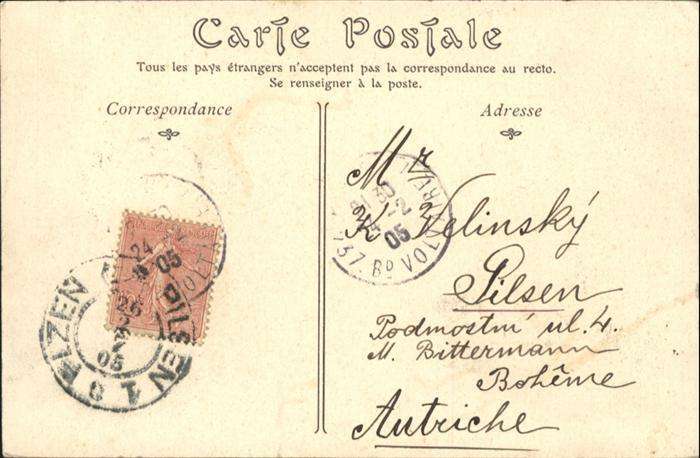 Carte Postale
Tous les pays étrangers n'acceptent pas la correspondance au recto.
Se renseigner à la poste.
Correspondance
Adresse
Mr
K Velinský
Pilsen
Podmostní ul. 4.
M. Bittermann
Bohême
Autriche
137. Bd VOLTAIRE
05
24
05
PILSEN 1
PLZEN
26
2
05